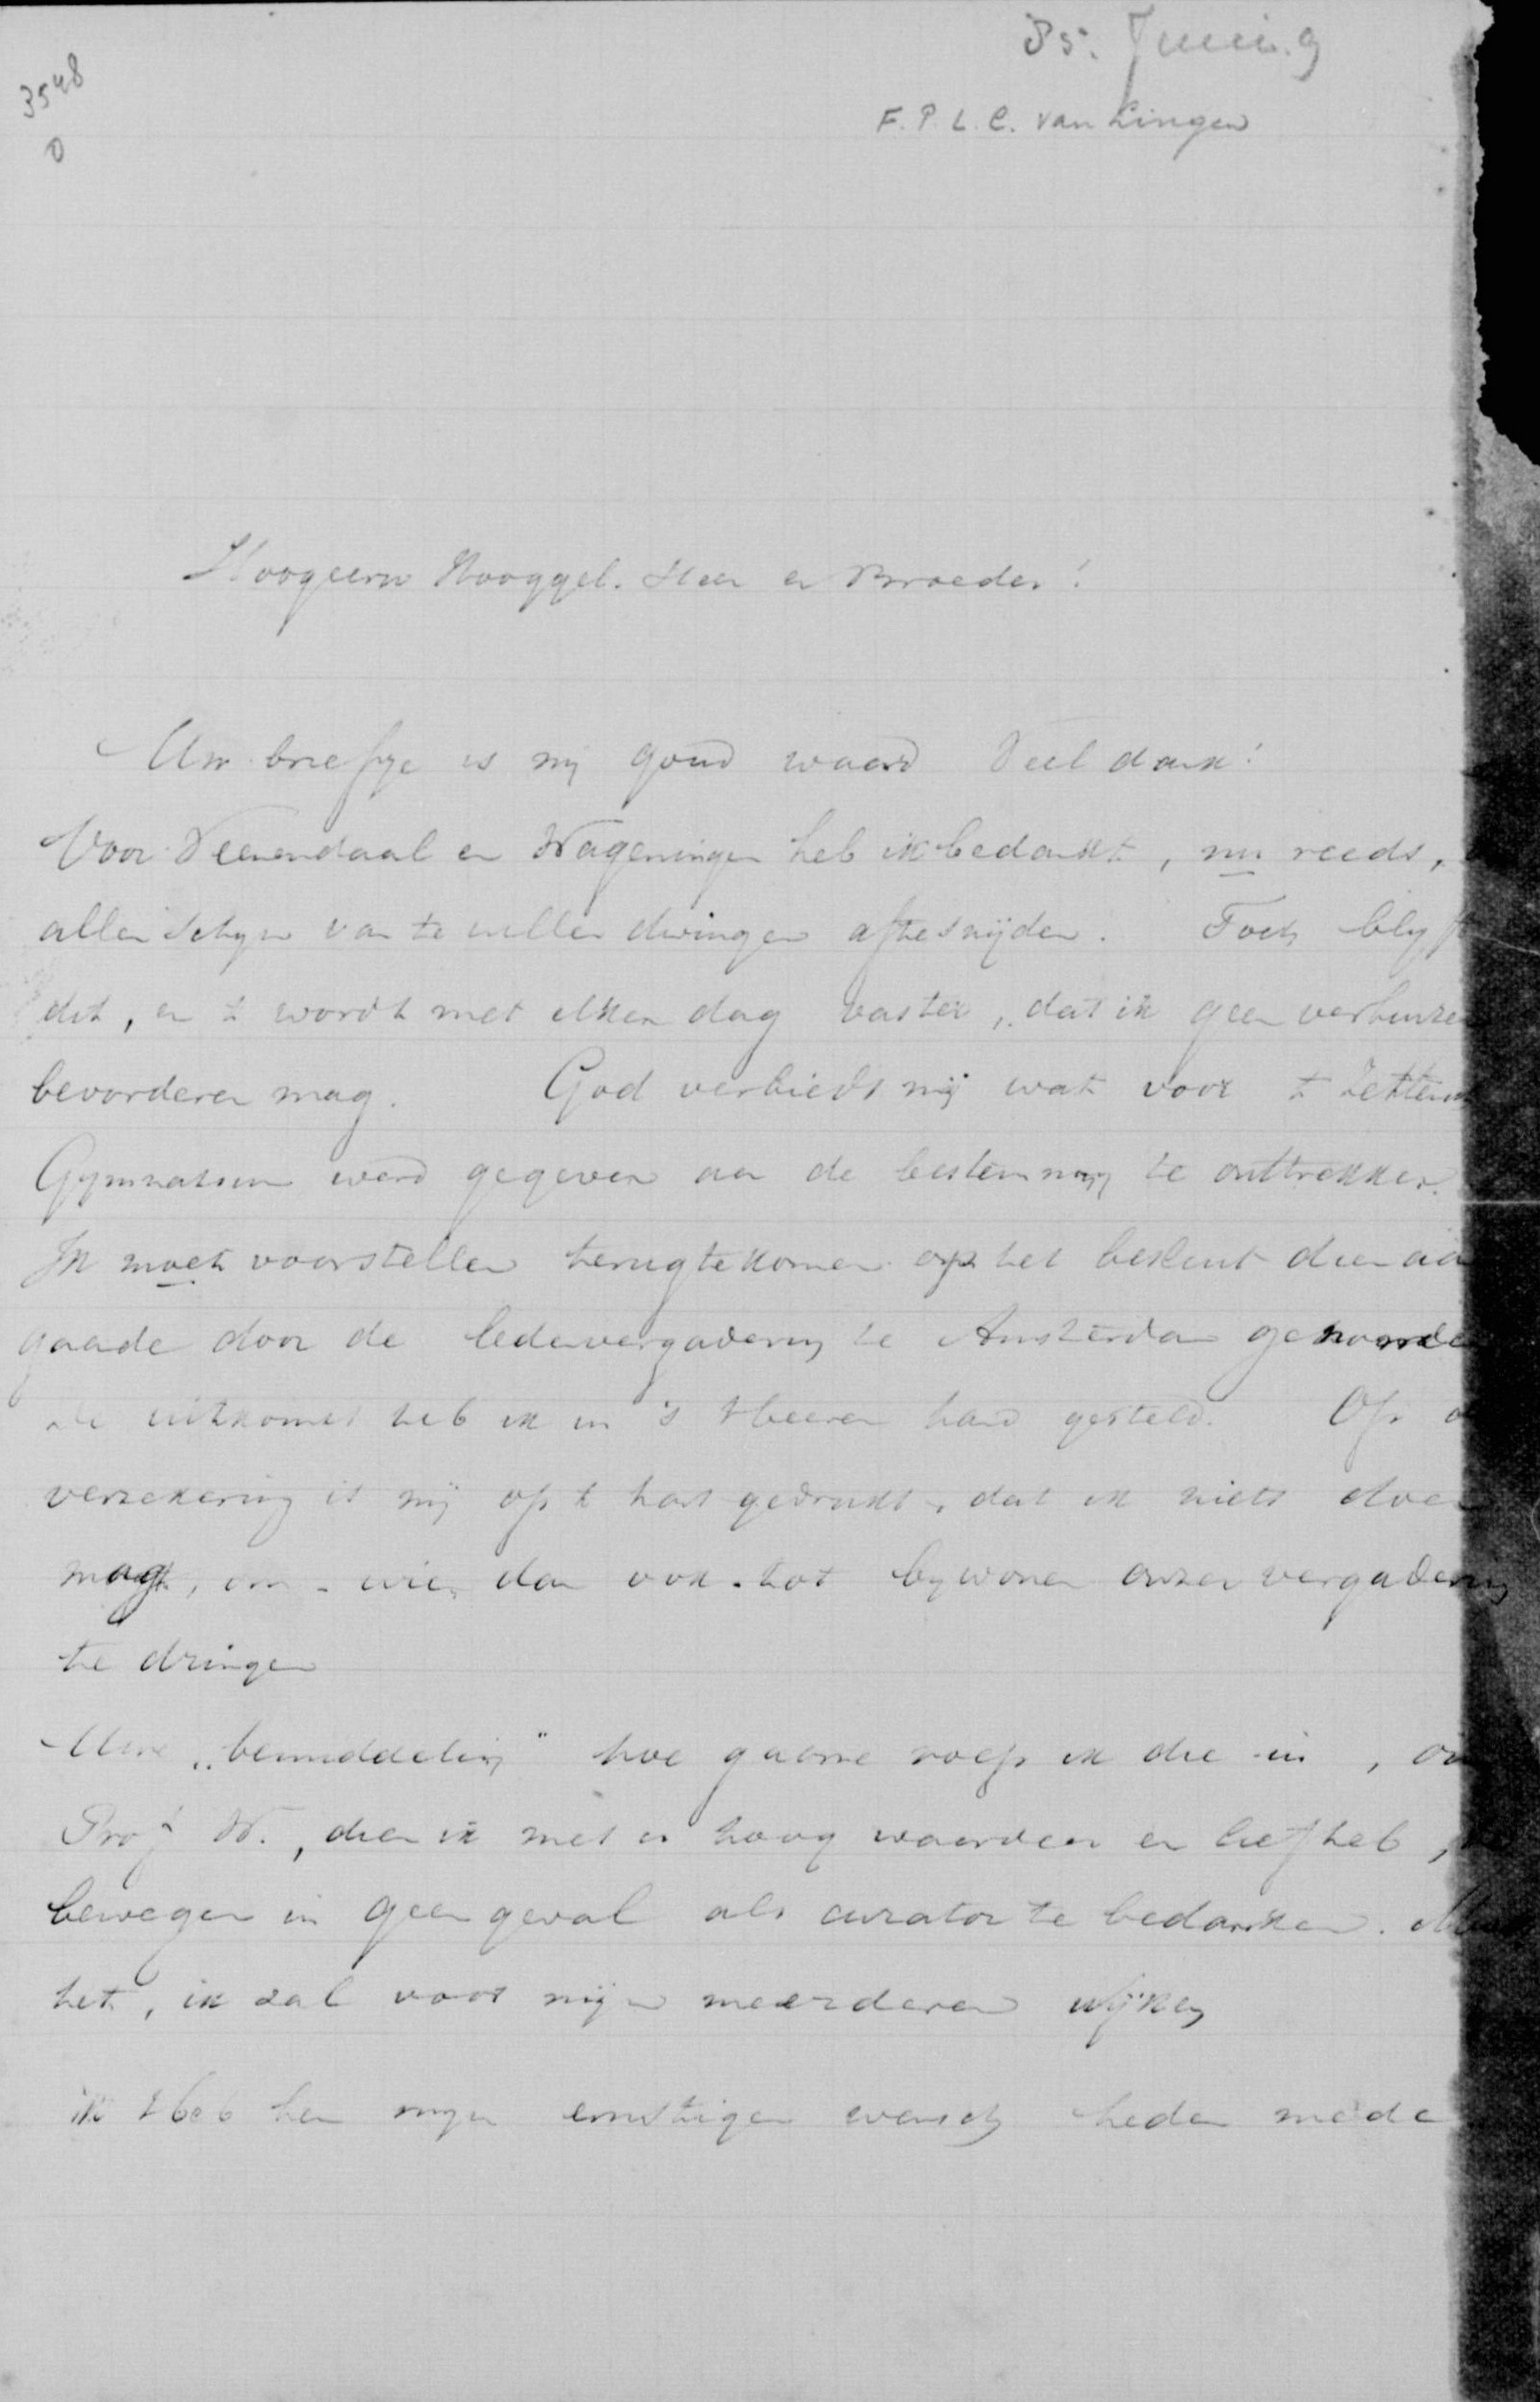 85. Juni. 9
3548
0
F. P. L. C. van Lingen
Hoogeerw Hooggel. Heer en Broeder!
Uw briefje is mij goud waard Veel dank!
Voor Veenendaal en Wageningen heb ik bedankt, nu reeds,
allen schijn van te willen dwingen aftesnijden. Toch blyft
dit, en 't wordt met elken dag vaster, dat ik geen verhuize
bevorderen mag. God verbiedt mij wat voor 't Zettensch
Gymnasium werd gegeven aan de bestemming te onttrekken.
Ik moet voorstellen terugtekomen op het besluit dien aan
gaande door de ledenvergadering te Amsterdam genomen
de uitkomst heb ik in 's Heeren hand gesteld. Op
verzekering is mij op 't hart gedrukt, dat ik niets doen
mag, om - wien dan ook - tot bywonen onzer vergadering
te dringen
Uwe „bemiddeling" hoe gaarne roep ik die in, om
Prof W., dien ik met u hoog waardeer en liefheb,
bewegen in geen geval als curator te bedanken.
het, ik zal voor mijn meerderen wijken
ik heb hen mijn ernstigen wensch heden mede